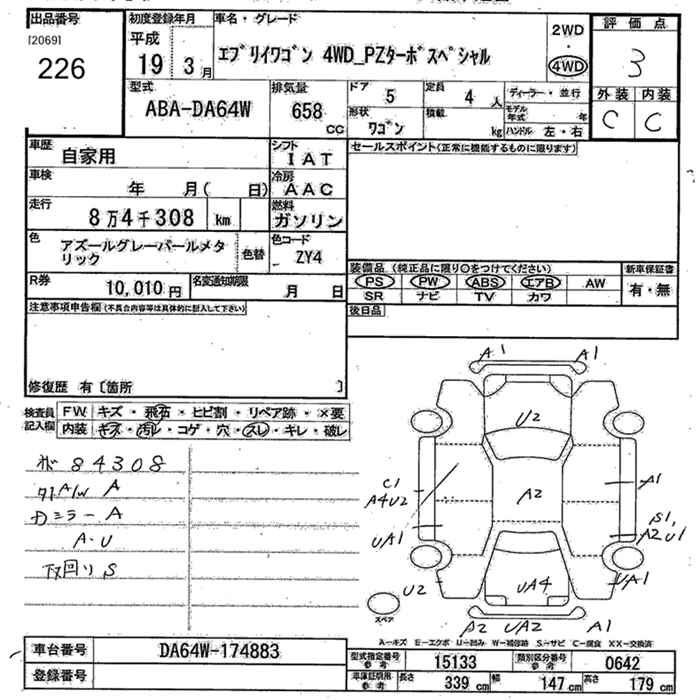 出品番号
[2069]
226
初度登録年月
平成
19 3月
車名・グレード
エブリイワゴン 4WD_PZターボスペシャル
2WD
・
4WD
評価点
3
外装 内装
C C
型式
ABA-DA64W
排気量
658
cc
ドア
5
定員
4 人
ディーラー・並行
形状
ワゴン
積載
kg
モデル年式 年
ハンドル 左・右
車歴
自家用
シフト
IAT
セールスポイント(正常に機能するものに限ります)
車検
年 月( 日)
冷房
AAC
走行
8万4千308 km
燃料
ガソリン
色
アズールグレーパールメタ
リック
色替
色コード
ZY4
装備品 (純正品に限り○をつけてください)
新車保証書
PS PW ABS エアB AW
SR ナビ TV カワ
有・無
R券
10,010 円
名変通知期限
月 日
後日品
注意事項申告欄(不具合内容等は具体的に記入して下さい)
修復歴 有〔箇所 〕
検査員
記入欄
FW キズ・飛石・ヒビ割・リペア跡・×要
内装 キズ・汚れ・コゲ・穴・スレ・キレ・破レ
84308
A/W A
ミラー A
A・U
下回り S
A1 A1
U2
A2
C1
A4U2
UA1
U2
A1
S1,
A2U1
UA1
UA4
A2 UA2 A1
スペア
A-キズ E-エクボ U-凹み W-補修跡 S-サビ C-腐食 XX-交換済
車台番号
DA64W-174883
登録番号
型式指定番号
参考
15133
類別区分番号
参考
0642
車庫証明用
参考
長さ 339 cm 幅 147 cm 高さ 179 cm